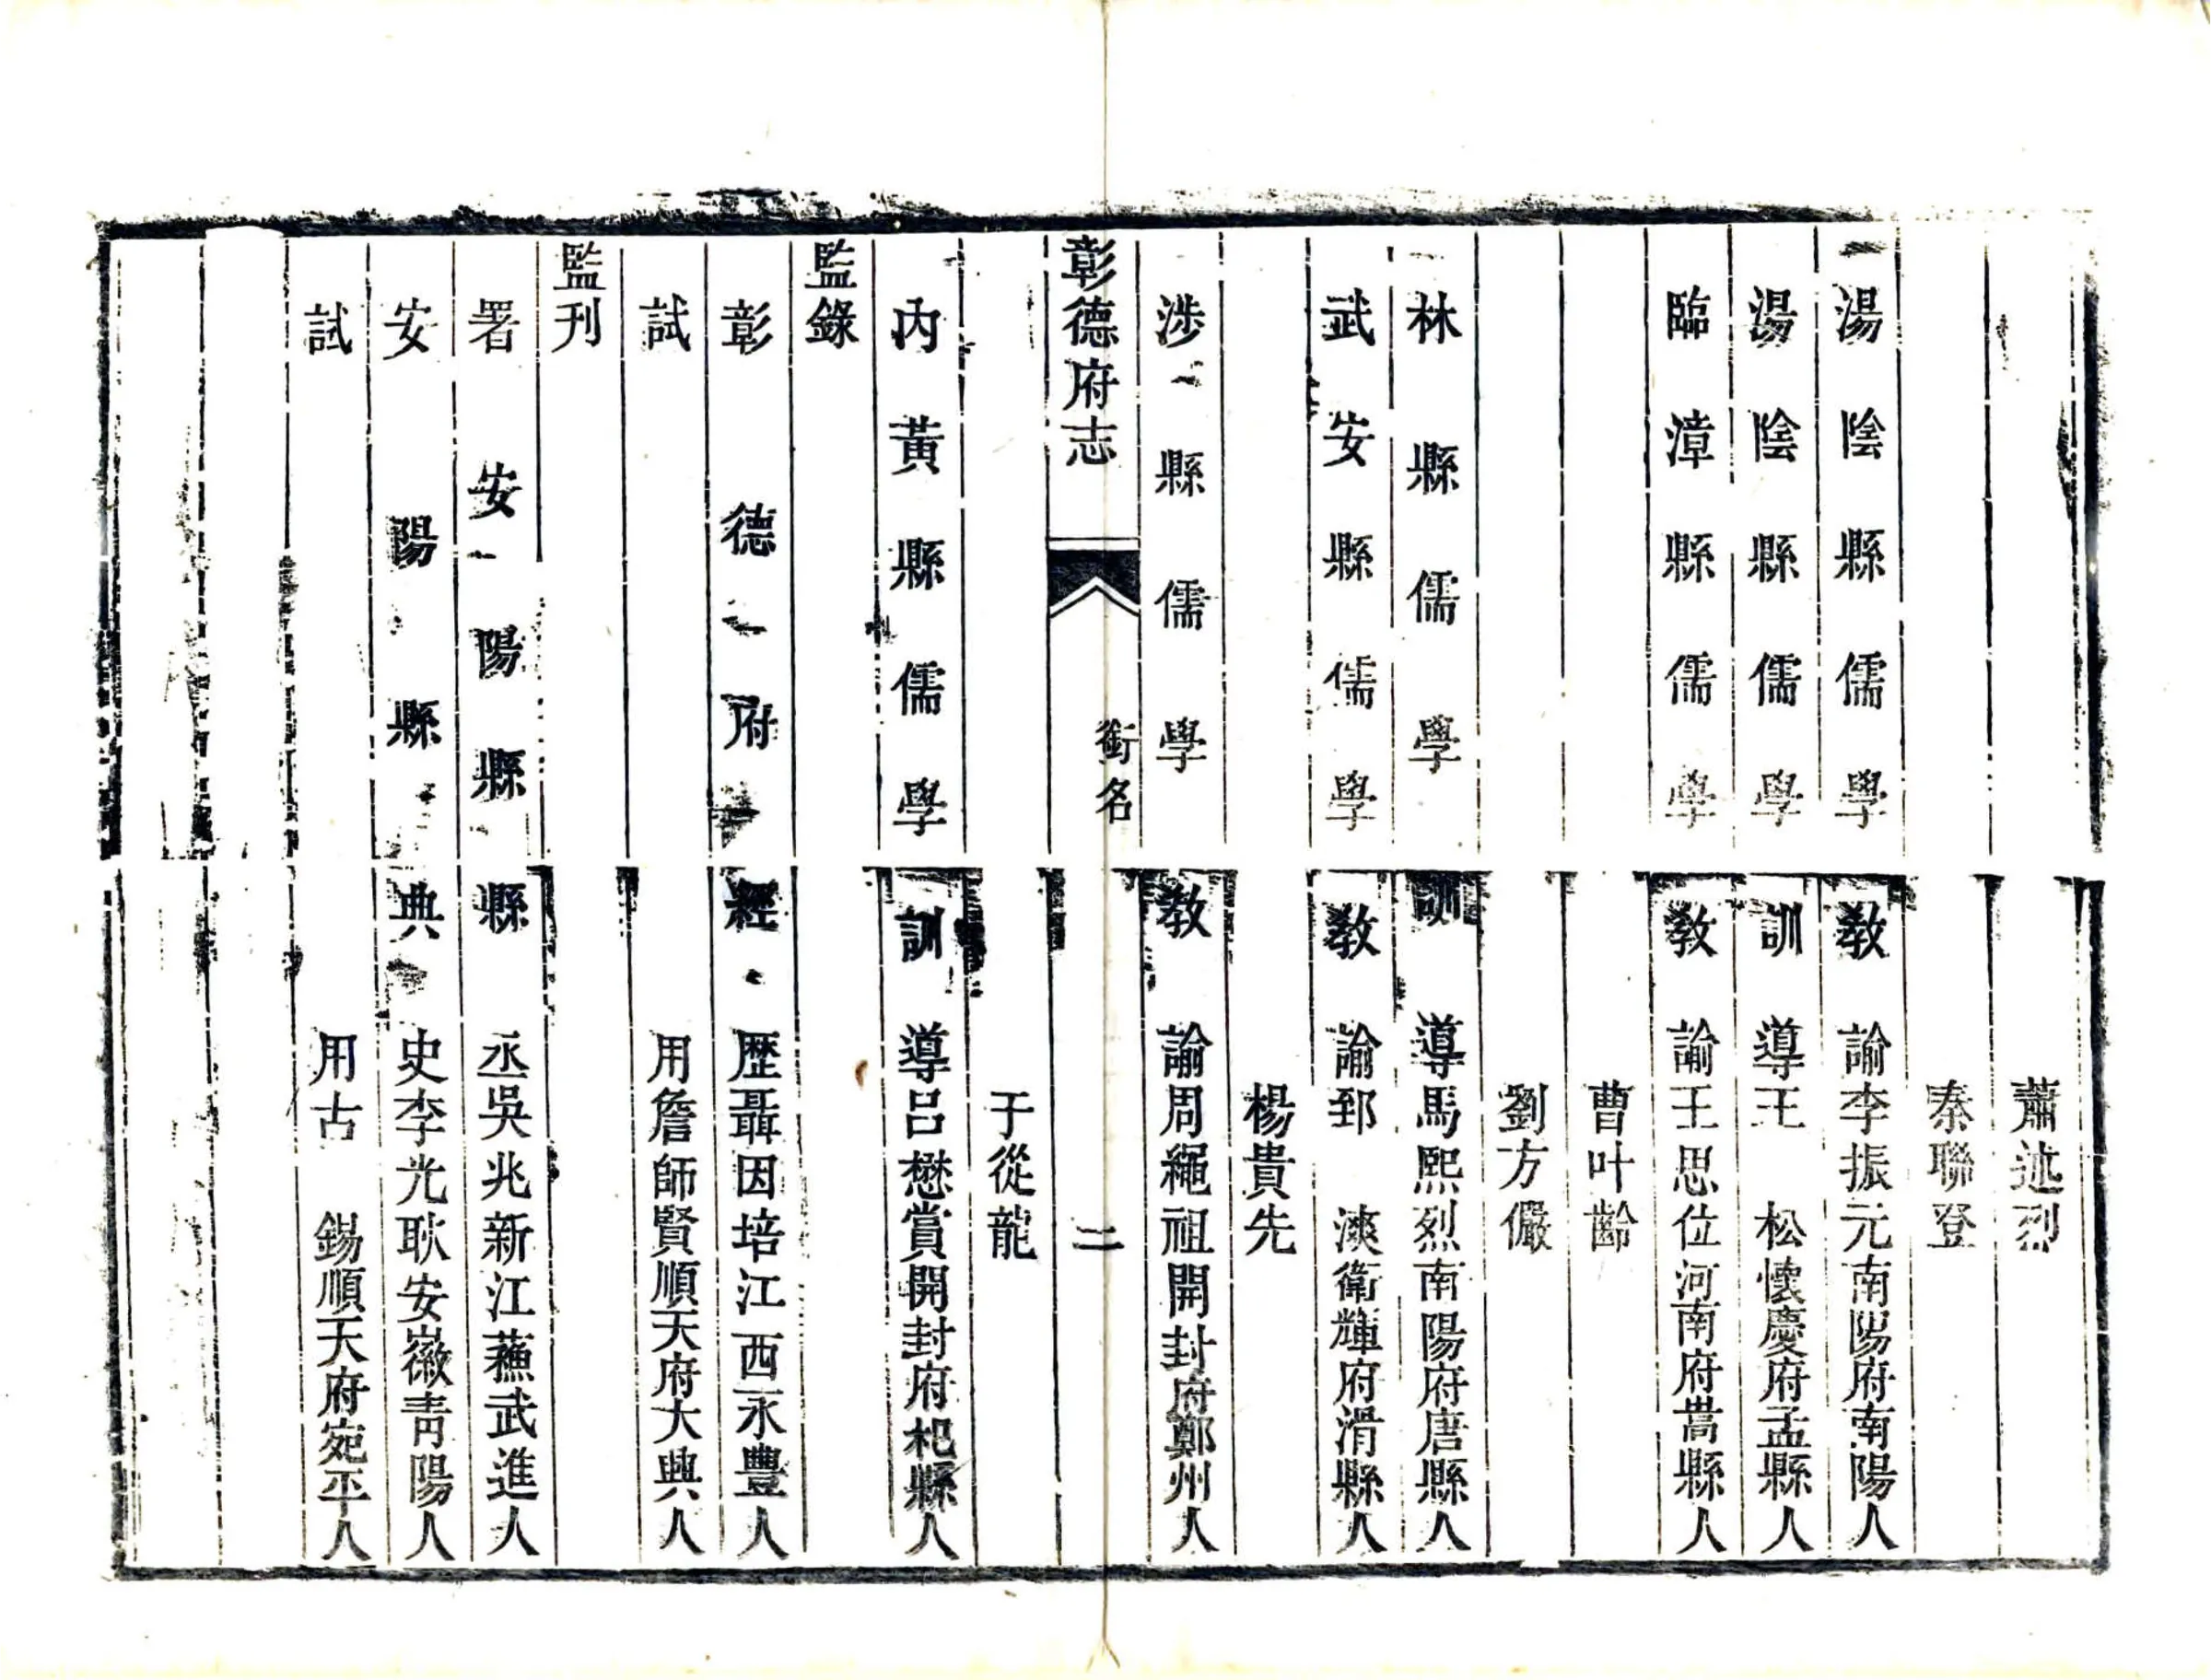 蕭述烈
秦聯登
湯陰縣儒學教諭李振元南陽府南陽人
湯陰縣儒學訓導王松懷慶府孟縣人
臨漳縣儒學教諭王思位河南府嵩縣人
曹叶齡
劉方儼
林縣儒學訓導馬熙烈南陽府唐縣人
武安縣儒學教諭郅漺衛輝府滑縣人
楊貴先
涉縣儒學教諭周繩祖開封府鄭州人
彰德府志 銜名 二
于從龍
內黃縣儒學訓導呂懋賞開封府杞縣人
監錄
彰德府經歷聶因培江西永豐人
試用詹師賢順天府大興人
監刊
署安陽縣縣丞吳兆新江蘇武進人
安陽縣典史李光耿安徽青陽人
試用古錫順天府宛平人